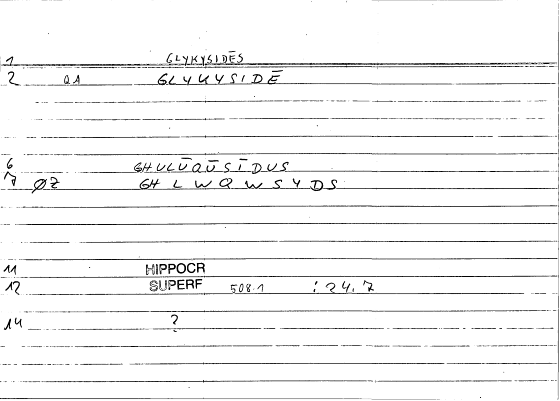 1 GLYKYSIDĒS
2 01 GLYKYSIDĒ
6 GHULŪQŪSĪDUS
7 ØZ GHLWQWSYDS
11 HIPPOCR
12 SUPERF 508.1 : 24.7
14 ?